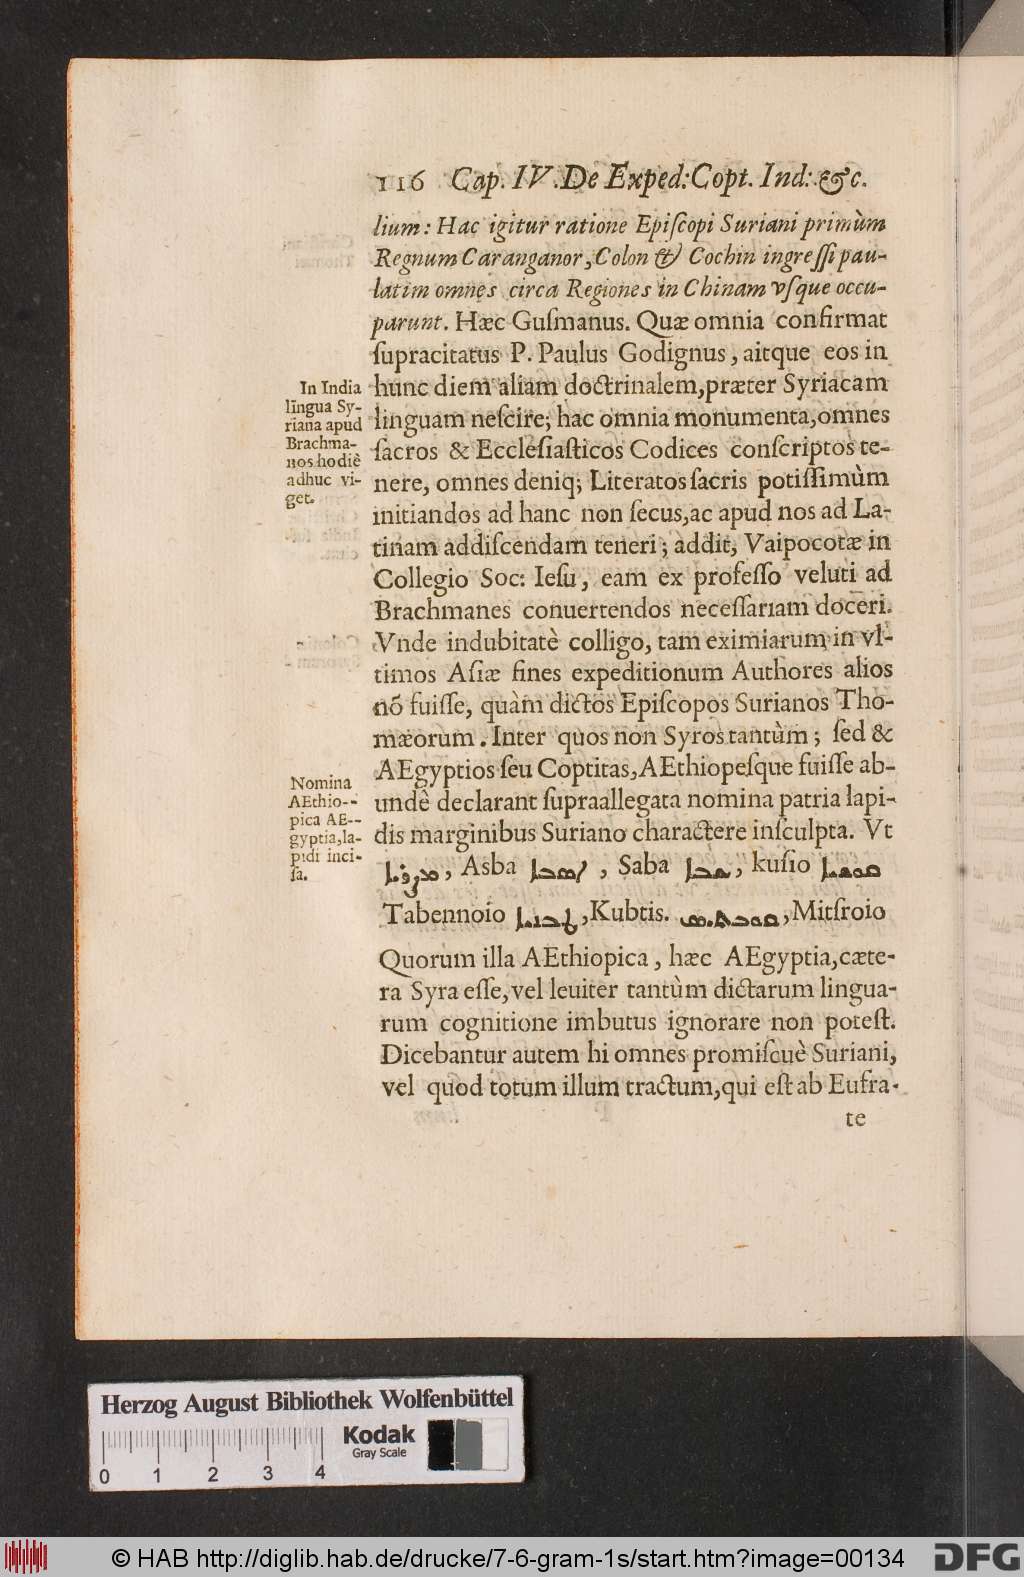 116 Cap. IV. De Exped: Copt. Ind: &c.
lium: Hac igitur ratione Epiſcopi Suriani primùm
Regnum Caranganor, Colon & Cochin ingreſſi pau-
latim omnes circa Regiones in Chinam vſque occu-
parunt. Hæc Guſmanus. Quæ omnia confirmat
ſupracitatus P. Paulus Godignus, aitque eos in
hunc diem aliam doctrinalem, præter Syriacam
linguam neſcire; hac omnia monumenta, omnes
ſacros & Eccleſiaſticos Codices conſcriptos te-
nere, omnes deniq; Literatos ſacris potiſſimùm
initiandos ad hanc non ſecus, ac apud nos ad La-
tinam addiſcendam teneri; addit, Vaipocotæ in
Collegio Soc: Ieſu, eam ex profeſſo veluti ad
Brachmanes conuertendos neceſſariam doceri.
Vnde indubitatè colligo, tam eximiarum in vl-
timos Aſiæ fines expeditionum Authores alios
nō fuiſſe, quàm dictos Epiſcopos Surianos Tho-
mæorum. Inter quos non Syros tantùm; ſed &
AEgyptios ſeu Coptitas, AEthiopeſque fuiſſe ab-
undè declarant ſupraallegata nomina patria lapi-
dis marginibus Suriano charactere inſculpta. Vt
, Asba , Saba , kuſio
Tabennoio , Kubtis. , Mitſroio
Quorum illa AEthiopica, hæc AEgyptia, cæte-
ra Syra eſſe, vel leuiter tantùm dictarum lingua-
rum cognitione imbutus ignorare non poteſt.
Dicebantur autem hi omnes promiſcuè Suriani,
vel quod totum illum tractum, qui eſt ab Eufra-
te
In India
lingua Sy-
riana apud
Brachma-
nos hodiè
adhuc vi-
get.
Nomina
AEthio--
pica AE--
gyptia, la-
pidi inci-
ſa.
Herzog August Bibliothek Wolfenbüttel
Kodak
Gray Scale
0 1 2 3 4
© HAB http://diglib.hab.de/drucke/7-6-gram-1s/start.htm?image=00134
DFG